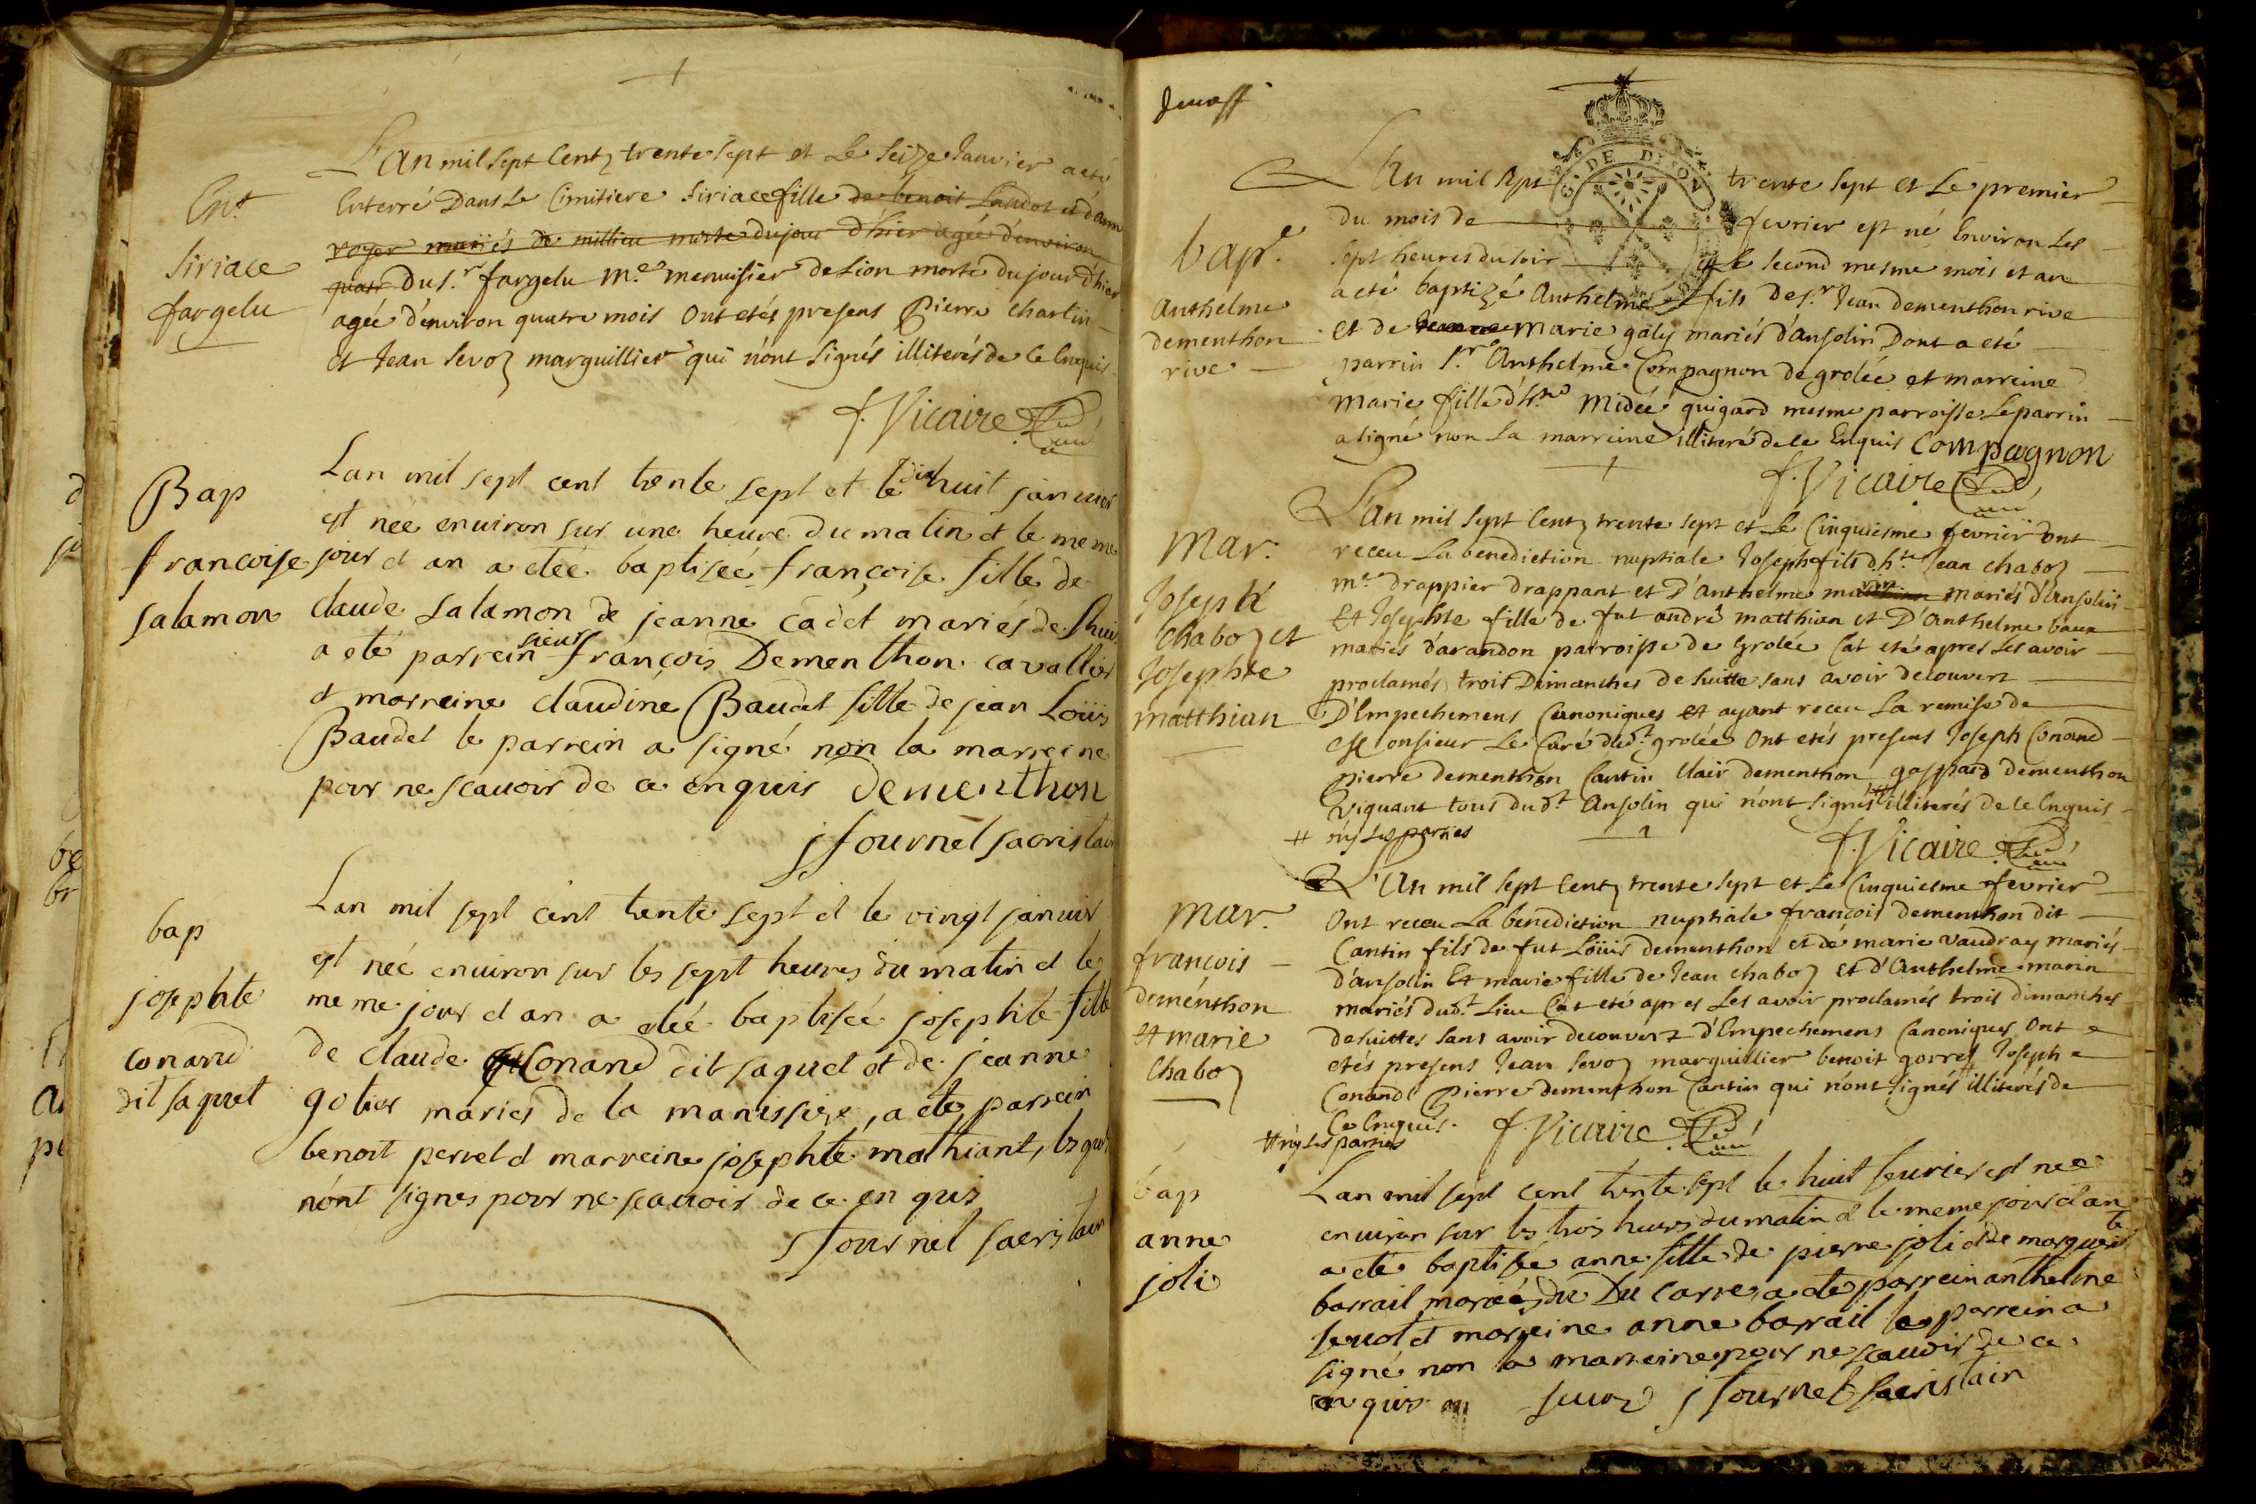 L'an mil sept Centz trente sept et Le seize Janvier a eté
Ent
Enterré Dans Le Cimitiere Siriace fille de benoit Landot et d'ann
royer mariés de millieu morte du jour d'hier agée d'environ
Siriace
quatr Du s.r fargelu M.e menuisier de Lion morte du jour d'hier
fargelu
agée d'environ quatre mois Ont etés presens Pierre Charlin
et Jean Sevoz marguillier qui n'ont signés illiterés de Ce Enquis
f. Vicaire Curé
Bap
Lan mil sept cent trente sept et le dix huit janvier
est née environ sur une heure du matin et le meme
francoise
jour et an a etée baptisée françoise fille de
salamon
claude salamon de jeanne cadet mariés de
a eté parrein sieur françois Dementhon cavallier
et marreine claudine Baudet fille de jean Loüis
Baudet le parrein a signé non la marreine
pour ne scavoir de ce enquis Dementhon
j fournel sacristain
bap
Lan mil sept cent trente sept et le vingt janvier
est née environ sur les sept heures du matin et le
josephte
meme jour et an a etée baptisée josephte fille
conand
de claude Conand dit saquet et de jeanne
dit saquet
gotier mariés de la manissiere, a eté parrein
benoit perret et marreine josephte mathiant, lesquels
n'ont signes pour ne scavoir de ce enquis
j fournel sacristain
G. DE DIJON
L'An mil sept trente sept et Le premier
du mois de fevrier est né Environ Les
bap.e
sept heures du soir et Le second mesme mois et an
Anthelme
a eté baptizé Anthelme fils de s.r Jean dementhon rive
dementhon
et de Jeanne Marie galy mariés d'ansolin Dont a eté
rive
parrin s.r Anthelme Compagnon de grolée et marreine
Marie fille d'h.te Midée guigard mesme parroisse Le parrin
a signé non La marreine illiteré de Ce Enquis Compagnon
f. Vicaire Curé
L'an mil sept Centz trente sept et Le Cinquiesme fevrier Ont
Mar.
receu La benediction nuptiale Joseph fils d'h.te Jean Chaboz
Joseph
m.e drappier drappant et D'Anthelme marin mariés d'ansolin
Chaboz et
Et Josephte fille de fut andré matthian et D'Anthelme baux
Josephte
mariés d'arandon parroisse de Grolée C'at eté apres Les avoir
matthian
proclamés trois Dimanches de suitte sans avoir decouvert
D'Empechemens Canoniques et ayant receu La remise de
Monsieur Le Curé dud.t grolée Ont etés presens Joseph Conand
pierre dementhon Cantin Clair dementhon gaspard dementhon
viguant tous dud.t Ansolin qui n'ont signés # illiterés de Ce Enquis
# ny Les parties
f. Vicaire Curé
L'An mil sept Centz trente sept et Le Cinquiesme fevrier
Mar.
Ont receu La benediction nuptiale françois dementhon dit
françois
Cantin fils de fut Loüis dementhon et de marie vaudray mariés
dementhon
d'ansolin Et marie fille de Jean Chaboz et d'Anthelme marin
et marie
mariés dud.t Lieu C'at eté apres Les avoir proclamés trois dimanches
Chaboz
de suittes sans avoir decouvert d'Empechemens Canoniques Ont
etés presens Jean Sevoz marguillier benoit gorret Joseph
Conand Pierre dementhon Cantin qui n'ont signés # illiterés de
Ce Enquis. f. Vicaire Curé
# ny Les parties
bap
Lan mil sept cent trente sept le huit fevrier est née
anne
environ sur les trois heures du matin et le meme jour et an
joli
a eté baptisée anne fille de pierre joli et de marguerite
barrail mariés du Du carre, a eté parrein anthelme
sevoz et marreine anne barrail le parrein a
signé non la marreine pour ne scavoir de ce
enquis sevoz j fournel sacristain